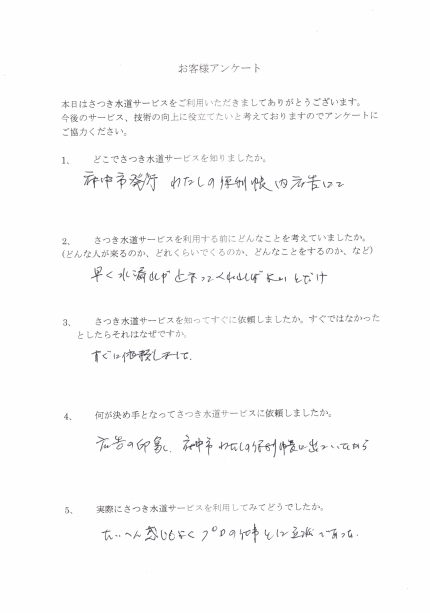 お客様アンケート
本日はさつき水道サービスをご利用いただきましてありがとうございます。
今後のサービス、技術の向上に役立てたいと考えておりますのでアンケートに
ご協力ください。
1、 どこでさつき水道サービスを知りましたか。
府中市発行 わたしの便利帳 内広告にて
2、 さつき水道サービスを利用する前にどんなことを考えていましたか。
(どんな人が来るのか、どれくらいでくるのか、どんなことをするのか、など)
早く水漏れが止まってくれれば よい とだけ
3、 さつき水道サービスを知ってすぐに依頼しましたか。すぐではなかった
としたらそれはなぜですか。
すぐに依頼しました.
4、 何が決め手となってさつき水道サービスに依頼しましたか。
広告の印象、府中市 わたしの便利帳に出ていたから
5、 実際にさつき水道サービスを利用してみてどうでしたか。
たいへん感じもよく プロの仕事 とに立派であった.